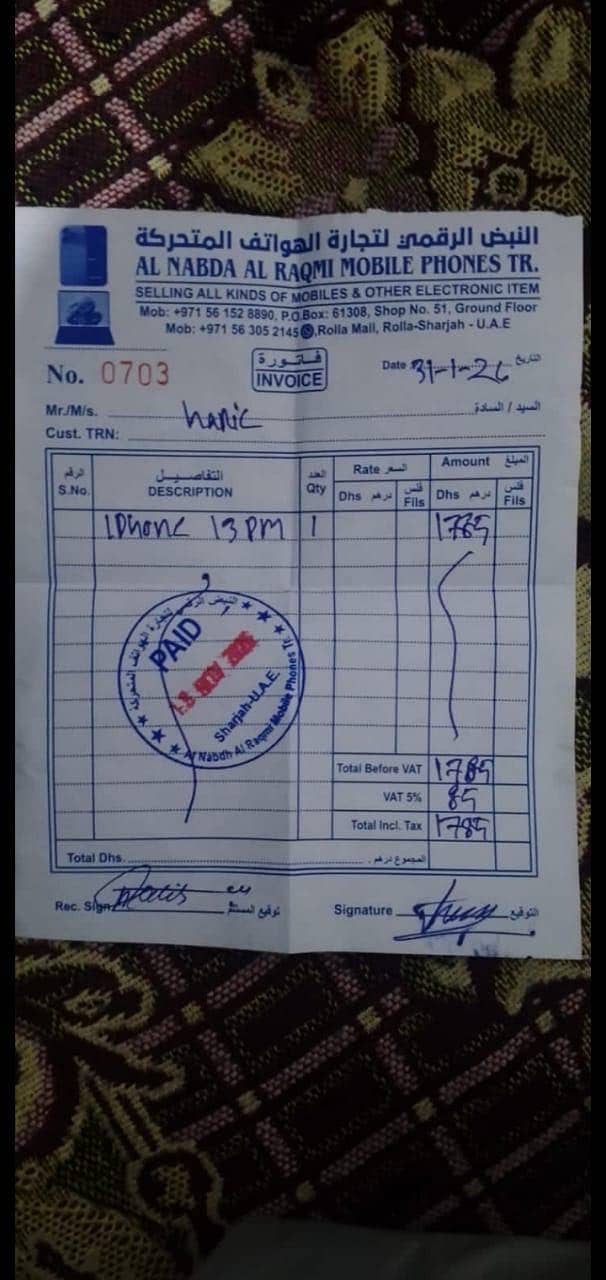 النبض الرقمي لتجارة الهواتف المتحركة
AL NABDA AL RAQMI MOBILE PHONES TR.
SELLING ALL KINDS OF MOBILES & OTHER ELECTRONIC ITEM
Mob: +971 56 152 8890, P.O.Box: 61308, Shop No. 51, Ground Floor
Mob: +971 56 305 2145, Rolla Mall, Rolla-Sharjah - U.A.E
No. 0703
فاتورة
INVOICE
Date 31-1-26 التاريخ
Mr./M/s. السيد / السادة
Cust. TRN:
الرقم التفاصيل العدد Rate السعر Amount المبلغ
S.No. DESCRIPTION Qty Dhs درهم فلس Fils Dhs درهم فلس Fils
IPhone 13 PM 1 1785
النبض الرقمي لتجارة الهواتف المتحركة
PAID
Sharjah-U.A.E.
Al Nabdh Al Raqmi Mobile Phones Tr.
Total Before VAT 1785
VAT 5% 85
Total Incl. Tax 1785
Total Dhs. المجموع درهم
Rec. Sign. توقيع المستلم
Signature التوقيع